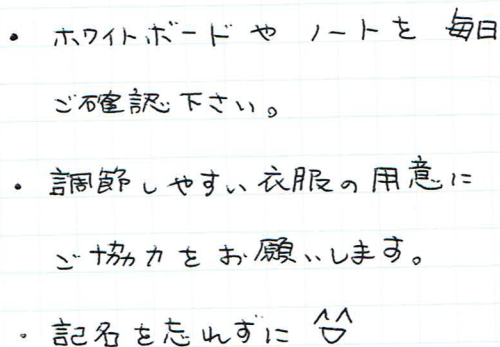 ・ ホワイトボードや ノートを 毎日
ご確認下さい。
・ 調節しやすい衣服の用意に
ご協力をお願いします。
・ 記名を忘れずに ^^